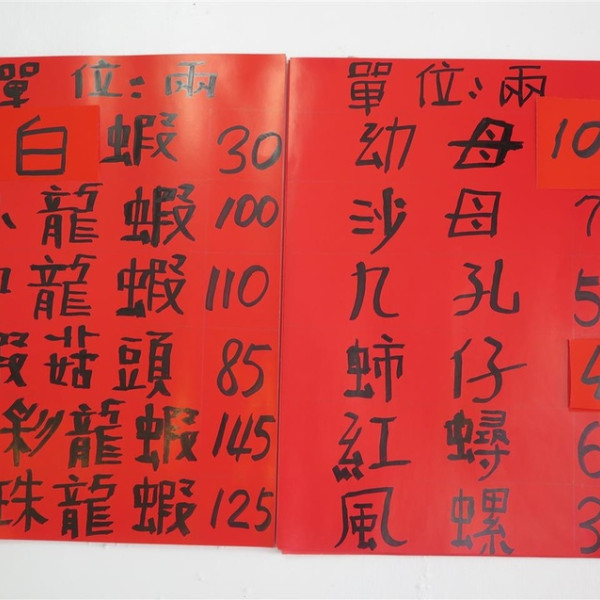 單位:兩
白蝦 30
小龍蝦 100
中龍蝦 110
蝦菇頭 85
彩龍蝦 145
珠龍蝦 125
單位:兩
幼母 10
沙母 7
九孔 5
仔 4
紅蟳 6
風螺 3